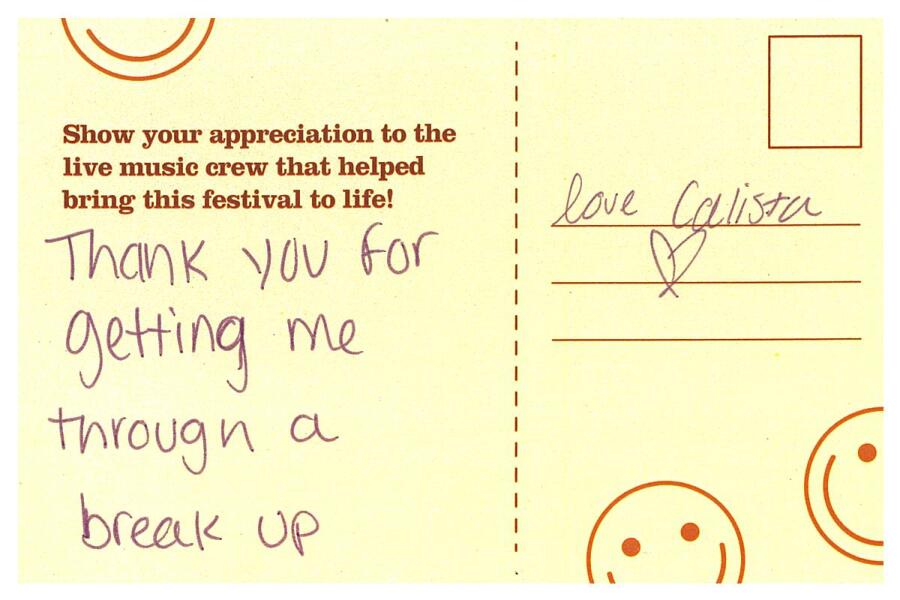 Show your appreciation to the
live music crew that helped
bring this festival to life!
Thank you for
getting me
through a
break up
love Calista